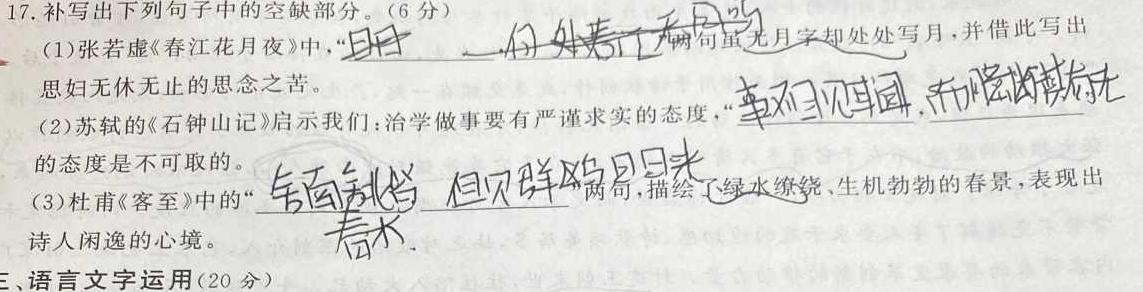 17.补写出下列句子中的空缺部分。(6分)
(1)张若虚《春江花月夜》中,“ 两句虽无月字却处处写月,并借此写出
思妇无休无止的思念之苦。
(2)苏轼的《石钟山记》启示我们:治学做事要有严谨求实的态度,“事不目见耳闻,而臆断其有无
的态度是不可取的。
(3)杜甫《客至》中的“舍南舍北皆 但见群鸥日日来 两句,描绘了绿水缭绕、生机勃勃的春景,表现出
春水.
诗人闲逸的心境。
三、语言文字运用(20分)